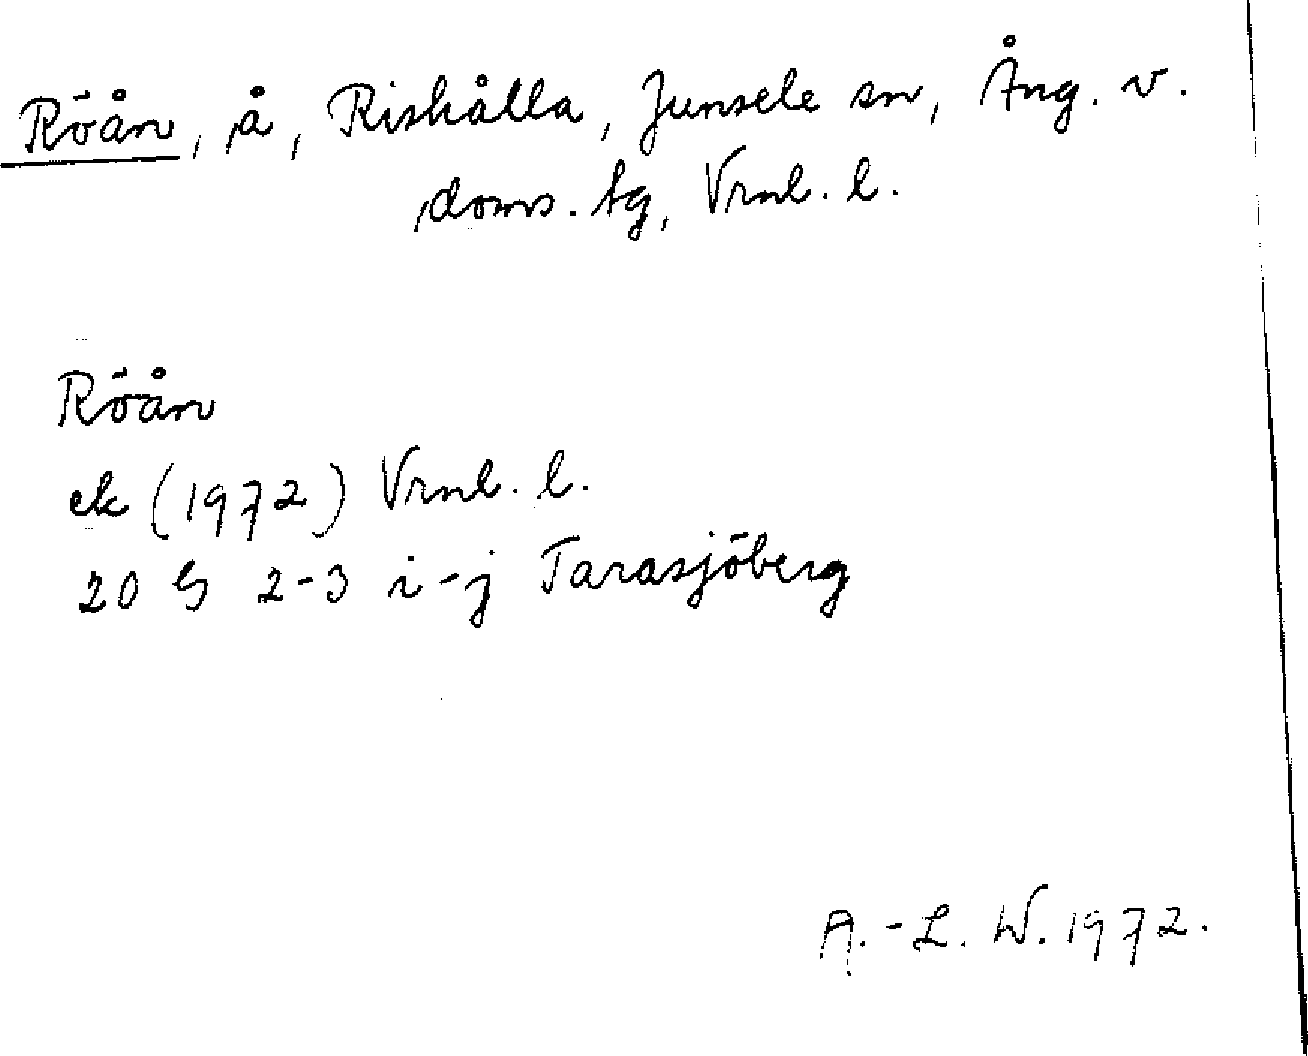 Röån, å, Riskålla, Junsele sn, Ång. v.
doms. tg, Vrnl. l.
Röån
ek (1972) Vrnl. l.
20 G 2-3 i-j Tarasjöberg
A.-L. W. 1972.